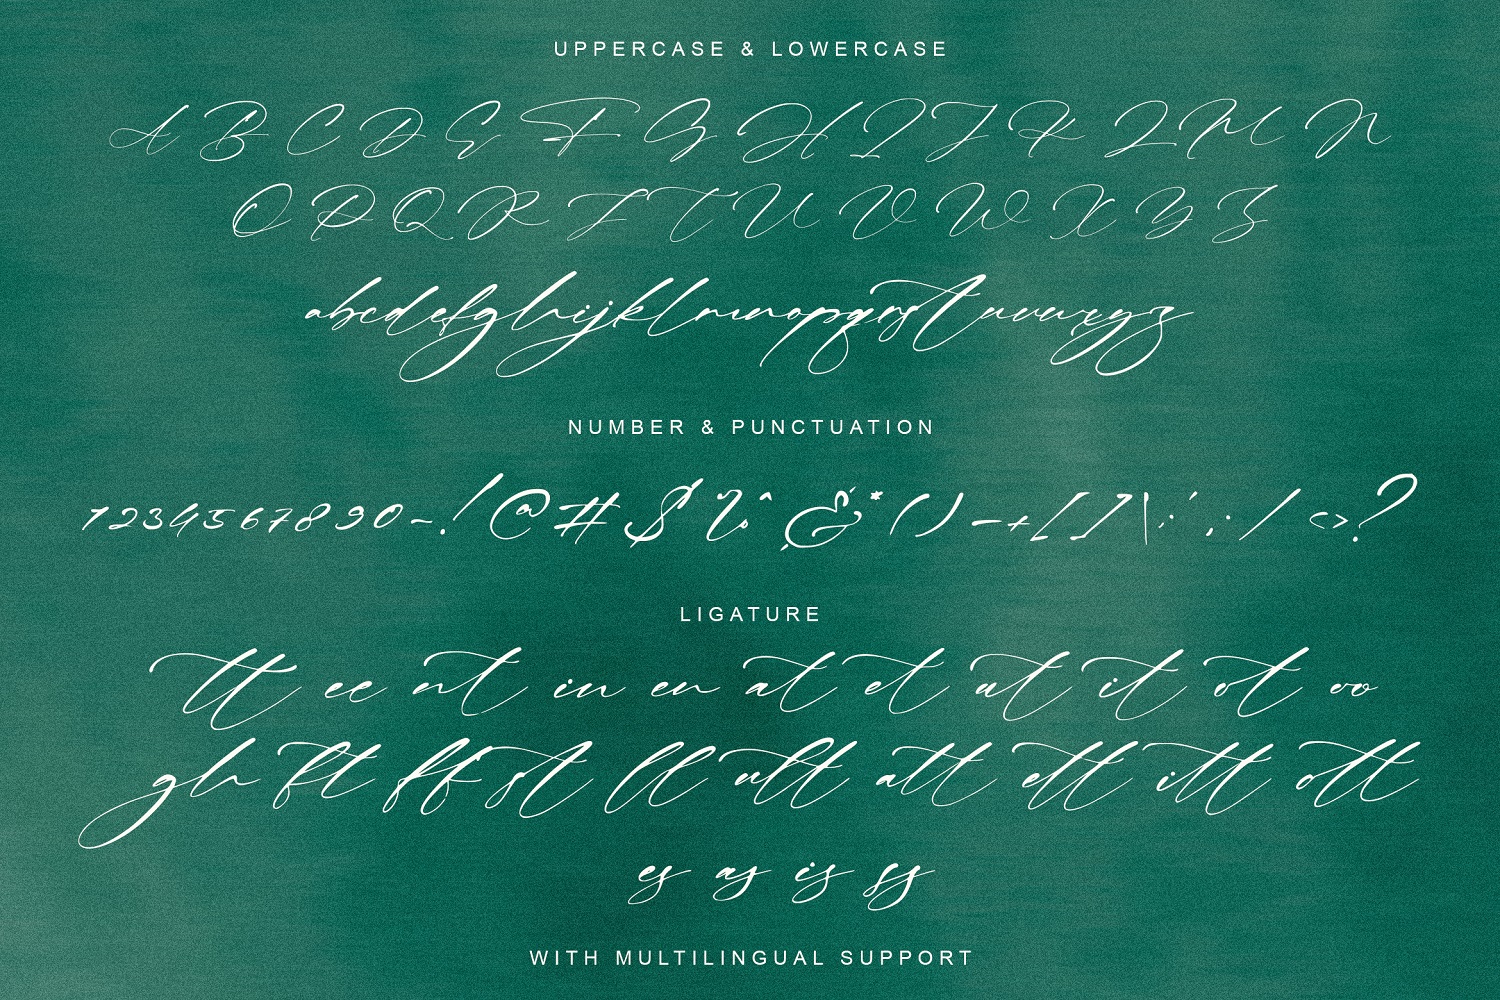 UPPERCASE & LOWERCASE
A B C D E F G H I J K L M N
O P Q R S T U V W X Y Z
abcdefghijklmnopqrstuvwxyz
NUMBER & PUNCTUATION
1234567890-!@#$%^&*()-+[]\|;':,./<>?
LIGATURE
tt ee nt in en at et ut it ot oo
gh ft ff st ll ult att ett itt ott
es as is ss
WITH MULTILINGUAL SUPPORT